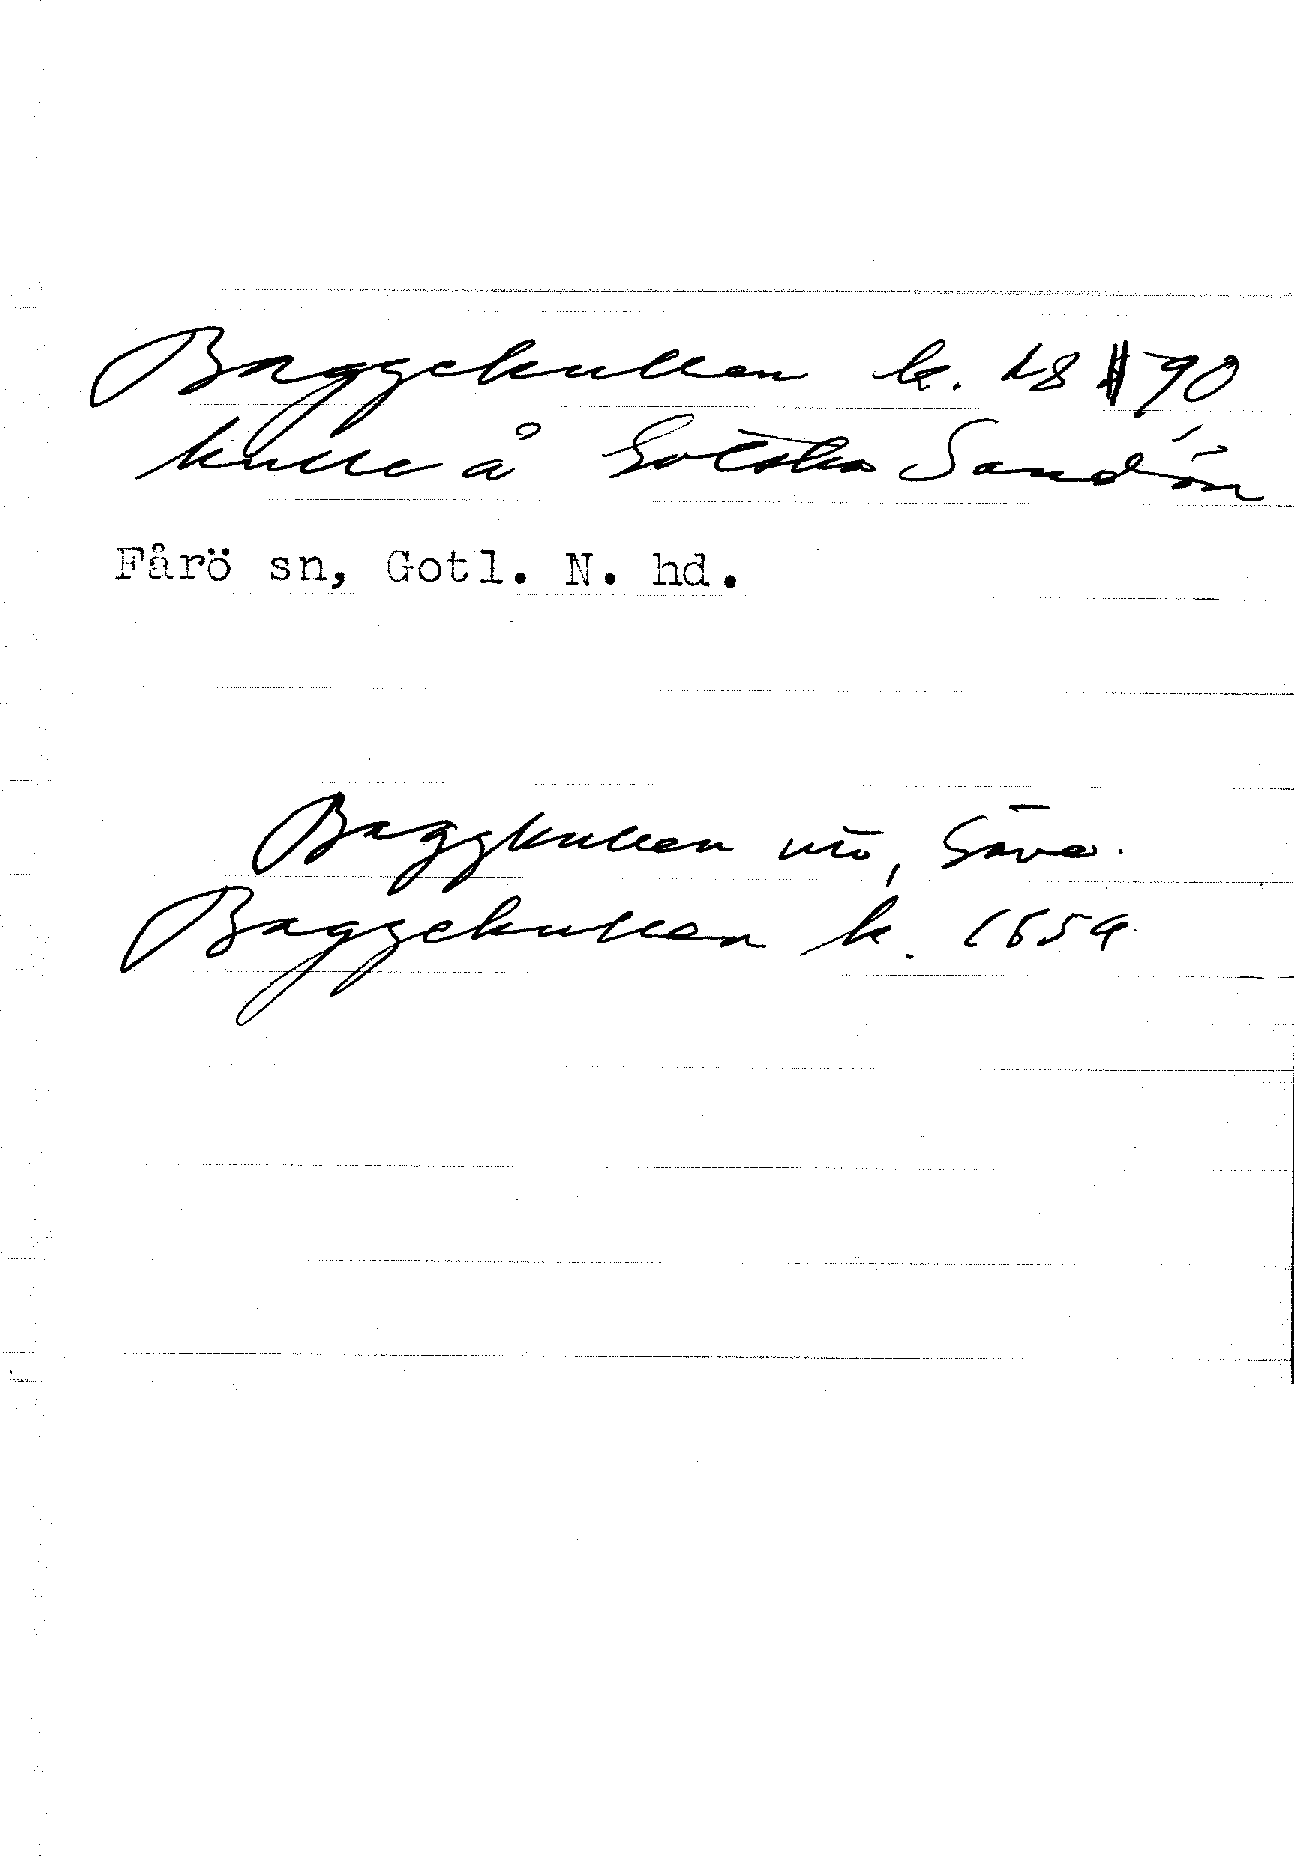 Baggekullen k. 90
kulle å Gotska Sandön
Fårö sn, Gotl. N. hd.
Baggkullen Säve.
Baggekullen k. 1659